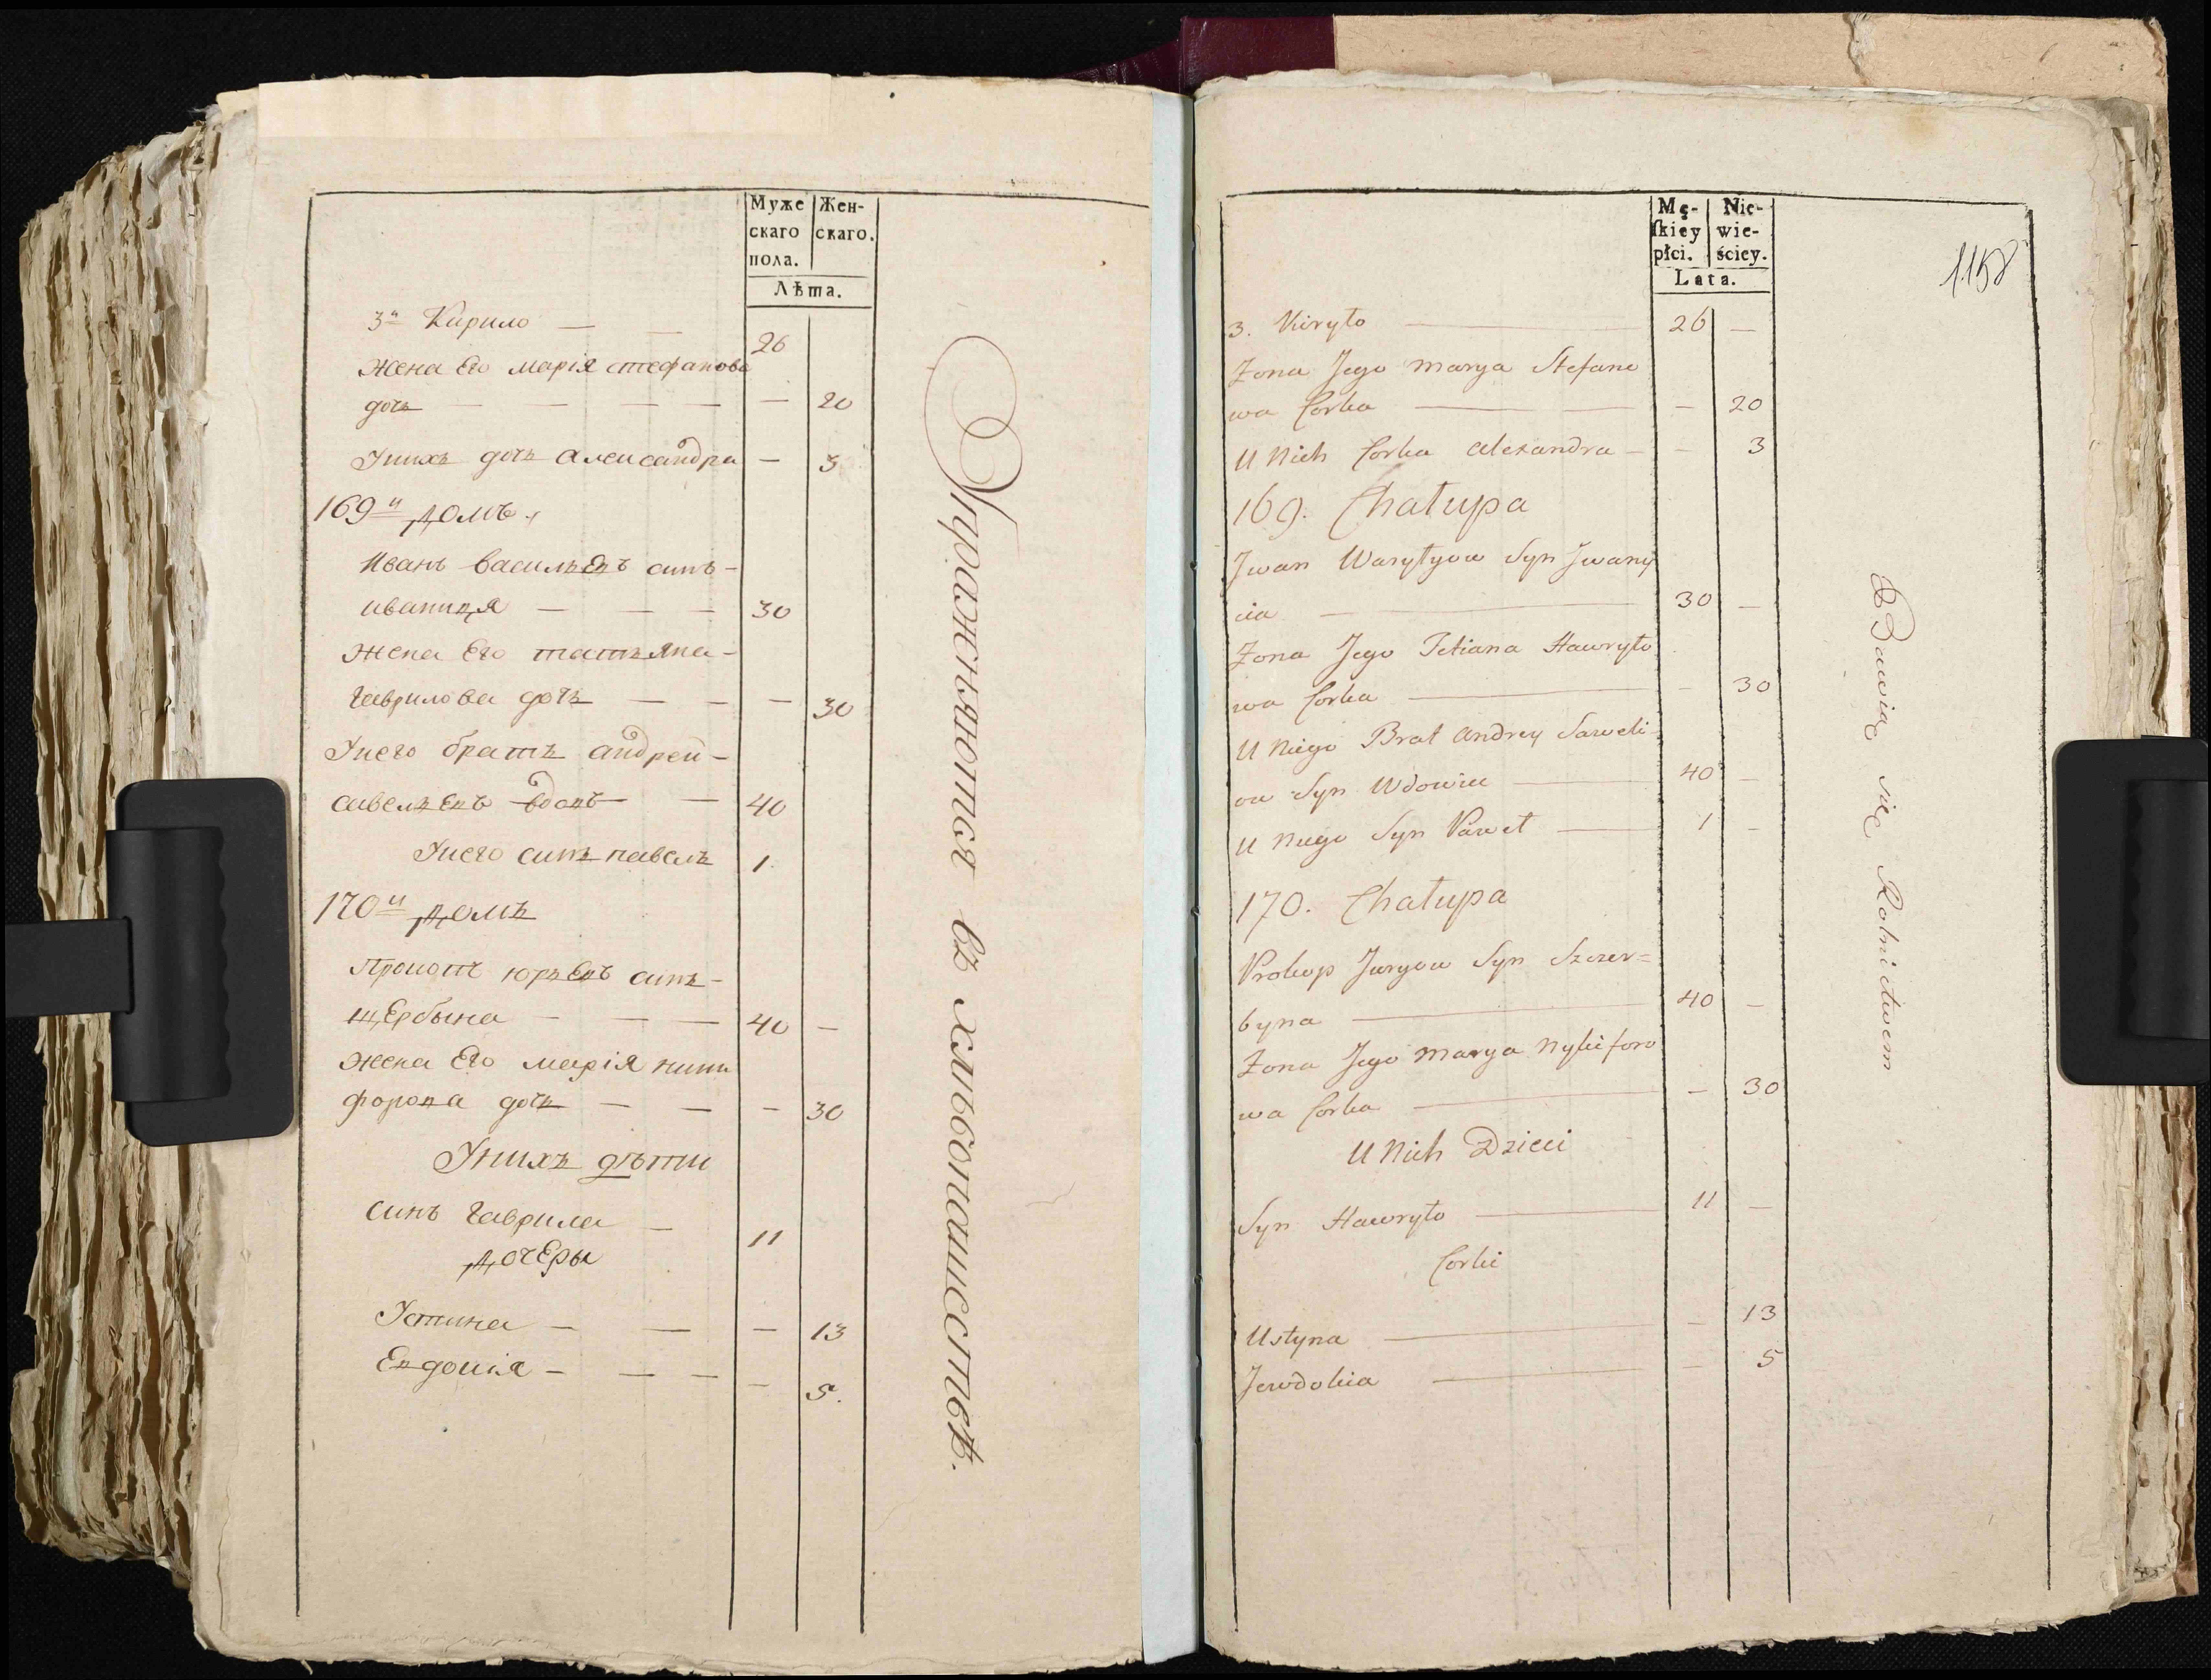 Муже
скаго
пола.
Жен-
скаго.
Лѣта.
3й Кирило — — 26
Жена Его марія стефанова
дочь — — — — — 20
Унихъ дочь александра — 3
169й Домъ
Иванъ васильевъ синъ -
иваница — — — 30
Жена Его татьяна -
гаврилова дочь — — — 30
Унего братъ андрей -
савельевъ вдовъ — 40
Унего синъ павелъ 1
170й Домъ
Прокопъ юрьевъ синъ -
щЕрбына — — — 40 —
Жена Его марія ники
форова дочь — — — 30
Унихъ дѣти
синъ гаврила — 11
ДочЕры
Устина — — — 13
Евдокия — — — — 5.
Упражняются въ хлѣбопашествѣ.
Mę-
skiey
płci.
Nie-
wie-
ściey.
Lata.
1158
3. Kiryło — 26 —
Zona Jego Marya Stefano
wa Corka — — — 20
U Nich Corka Alexandra — — 3
169. Chałupa
Jwan Wasylyow Syn Jwany
cia — 30 —
Zona Jego Tetiana Hawryło
wa Corka — — 30
U Niego Brat Andrey Saweli-
ow Syn Wdowiec — 40 —
U Niego Syn Paweł — 1 —
170. Chałupa
Prokop Juryow Syn Szczer=
byna — 40 —
Zona Jego Marya Nykiforo
wa Corka — — 30
U Nich Dzieci
Syn Hawryło — 11 —
Corki
Ustyna — — 13
Jewdokia — — 5
Bawią się Rolnictwem